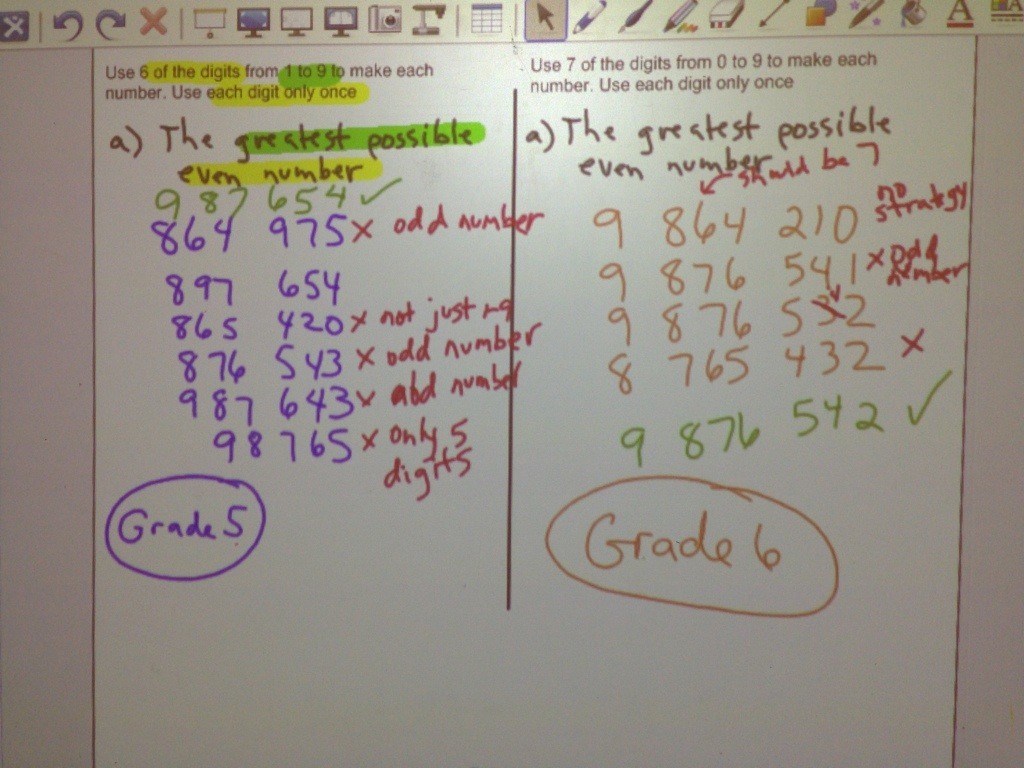 Use 6 of the digits from 1 to 9 to make each
number. Use each digit only once
a) The greatest possible
even number
9 87 654 ✓
864 975 x odd number
897 654
865 420 x not just 1-9
876 543 x odd number
987 643 x odd number
98 765 x only 5
digits
Grade 5
Use 7 of the digits from 0 to 9 to make each
number. Use each digit only once
a) The greatest possible
even number
should be 7
9 864 210 no
strategy
9 876 541 x odd
number
9 876 532
8 765 432 x
9 876 542 ✓
Grade 6
A
A